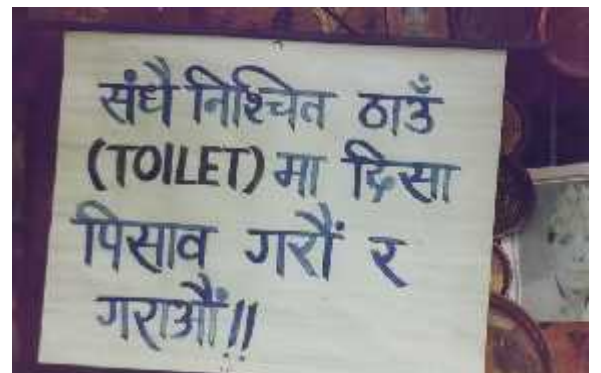 संधै निश्चित ठाउँ
(TOILET) मा दिसा
पिसाव गरौं र
गराऔं!!